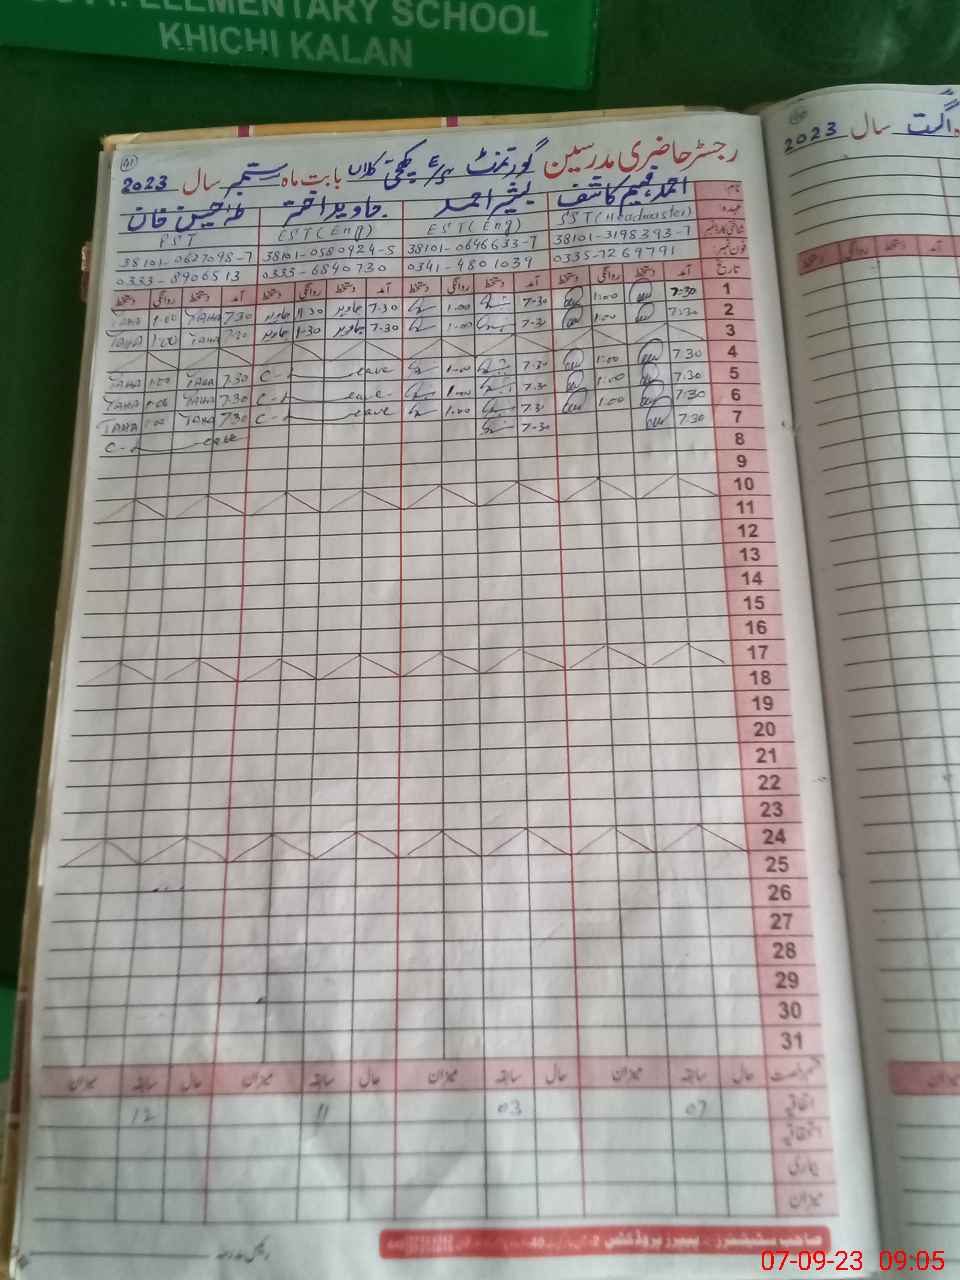 ELEMENTARY SCHOOL
KHICHI KALAN
رجسٹر حاضری مدرسین گورنمنٹ کھچی کلاں بابت ماہ ستمبر سال 2023
41
نام احمد فہیم کاشف بشیر احمد جاوید اختر طہٰ حسین خان
عہدہ SST (Headmaster) EST (Eng) EST (Eng) PST
شناختی کارڈ نمبر 38101-3198393-7 38101-0646633-7 38101-0580924-5 38101-0627098-7
فون نمبر 0335-7269791 0341-4801039 0333-6840730 0333-8906513
تاریخ آمد دستخط روانگی دستخط آمد دستخط روانگی دستخط آمد دستخط روانگی دستخط آمد دستخط روانگی دستخط
1 7:30 1:00 7:30 1:00 7:30 جاوید 11:30 جاوید 7:30 TAHA 1:00 TAHA
2 7:30 1:00 7:30 1:00 7:30 جاوید 1:30 جاوید 7:30 TAHA 1:00 TAHA
3
4 7:30 1:00 7:30 1:00 C-Leave 7:30 TAHA 1:00 TAHA
5 7:30 1:00 7:30 1:00 C-Leave 7:30 TAHA 1:00 TAHA
6 7:30 1:00 7:30 1:00 C-Leave 7:30 TAHA 1:00 TAHA
7 7:30 7:30 C-Leave
8
9
10
11
12
13
14
15
16
17
18
19
20
21
22
23
24
25
26
27
28
29
30
31
قسم رخصت حال سابقہ میزان حال سابقہ میزان حال سابقہ میزان حال سابقہ میزان
اتفاقیہ 07 03 11 12
استحقاقیہ
بیماری
میزان
رئیس مدرسہ
صاحب سٹیشنرز پیپرز پروڈکٹس
سال 2023
ماہ اگست
آمد دستخط روانگی دستخط
میزان
07-09-23 09:05